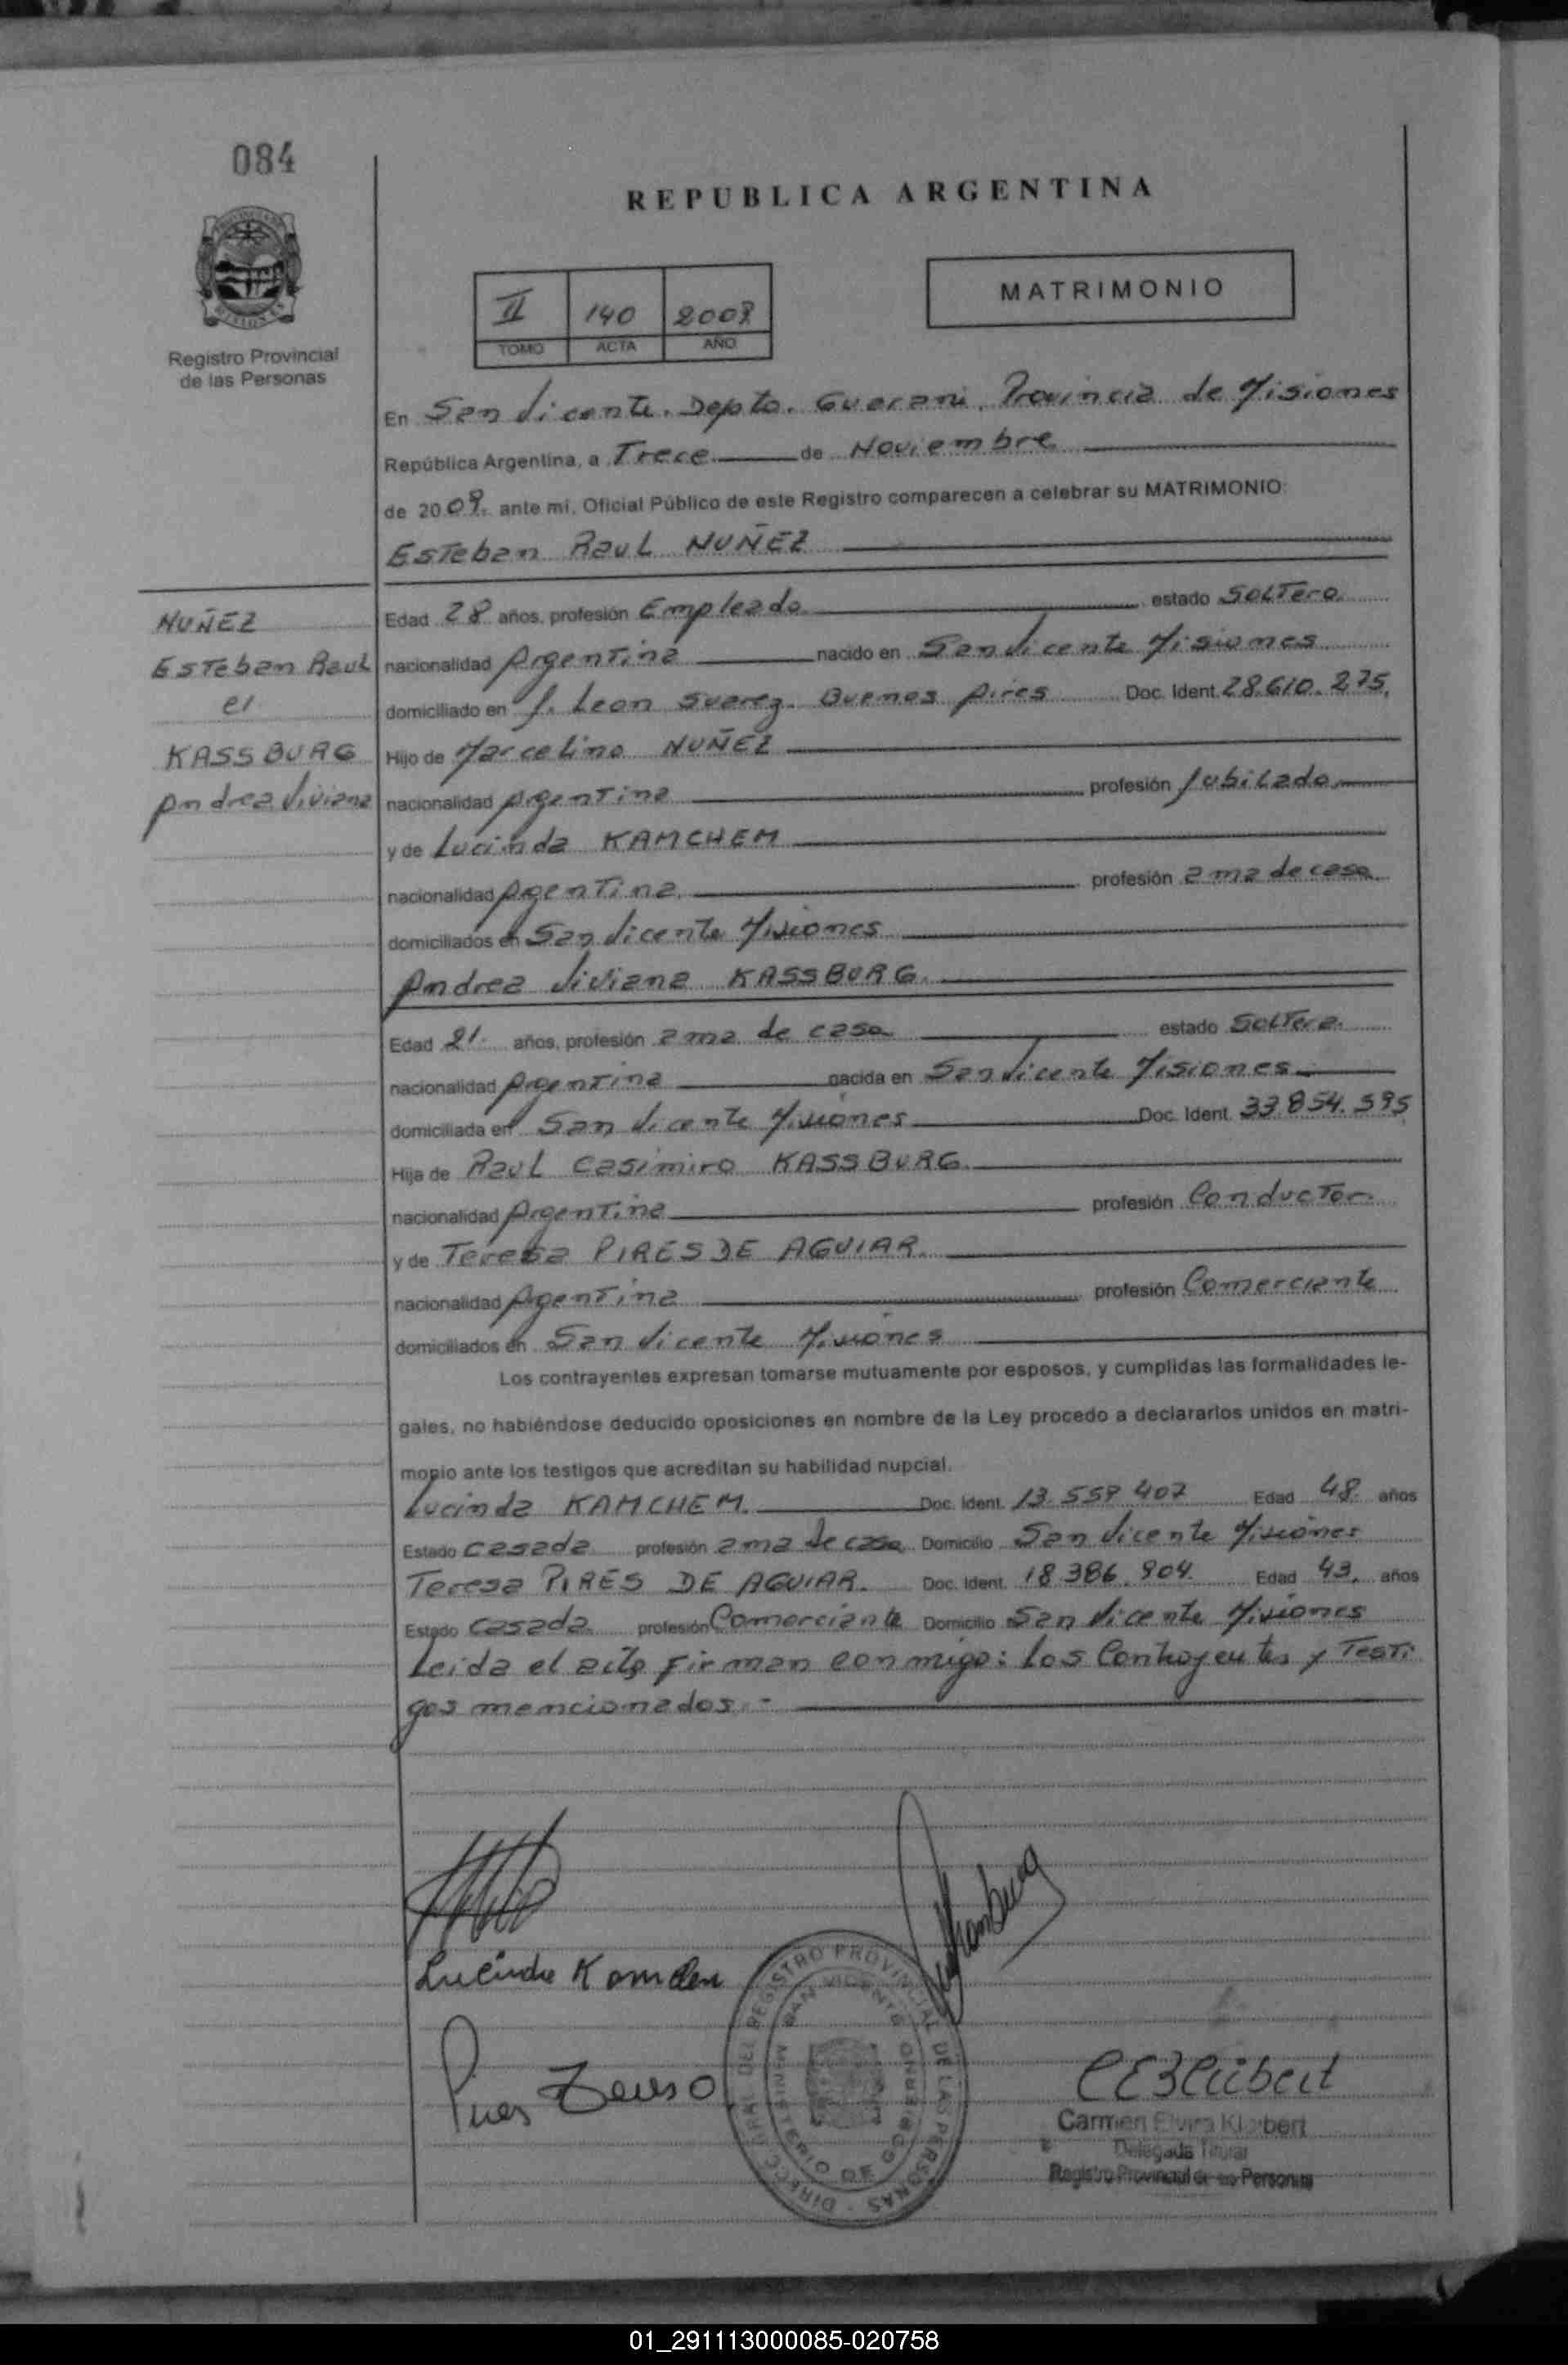 084
REPUBLICA ARGENTINA
Registro Provincial
de las Personas
MATRIMONIO
II 140 2009
TOMO ACTA AÑO
En San Vicente. Depto. Guarani. Provincia de Misiones
República Argentina, a Trece de Noviembre
de 2009. ante mi, Oficial Público de este Registro comparecen a celebrar su MATRIMONIO:
Esteban Raul NUÑEZ
NUÑEZ
Esteban Raul
KASSBURG
Andrea Viviana
Edad 28 años, profesión Empleado estado Soltero
nacionalidad Argentina nacido en San Vicente Misiones
domiciliado en J. Leon Suarez. Buenos Aires Doc. Ident. 28.610.275.
Hijo de Marcelino NUÑEZ
nacionalidad Argentina profesión Jubilado
y de Lucinda KAMCHEM
nacionalidad Argentina. profesión ama de casa
domiciliados en San Vicente Misiones
Andrea Viviana KASSBURG.
Edad 21. años, profesión ama de casa estado Soltera.
nacionalidad Argentina nacida en San Vicente Misiones
domiciliada en San Vicente Misiones Doc. Ident. 33.854.595
Hija de Raul Casimiro KASSBURG.
nacionalidad Argentina profesión Conductor.
y de Teresa PIRES DE AGUIAR.
nacionalidad Argentina profesión Comerciante
domiciliados en San Vicente Misiones
Los contrayentes expresan tomarse mutuamente por esposos, y cumplidas las formalidades le-
gales, no habiéndose deducido oposiciones en nombre de la Ley procedo a declararlos unidos en matri-
monio ante los testigos que acreditan su habilidad nupcial.
Lucinda KAMCHEM. Doc. Ident. 13.559.407 Edad 48. años
Estado Casada profesión ama de casa Domicilio San Vicente Misiones
Teresa PIRES DE AGUIAR. Doc. Ident. 18.386.904. Edad 43. años
Estado Casada. profesión Comerciante Domicilio San Vicente Misiones
Leida el acta firman conmigo: los Contrayentes y Testi
gos mencionados.-
DIRECC. GRAL. DEL REGISTRO PROVINCIAL DE LAS PERSONAS
SAN VICENTE
MINISTERIO DE GOBIERNO
Carmen Elvira Klubert
Delegada Titular
Registro Provincial de las Personas
01_291113000085-020758